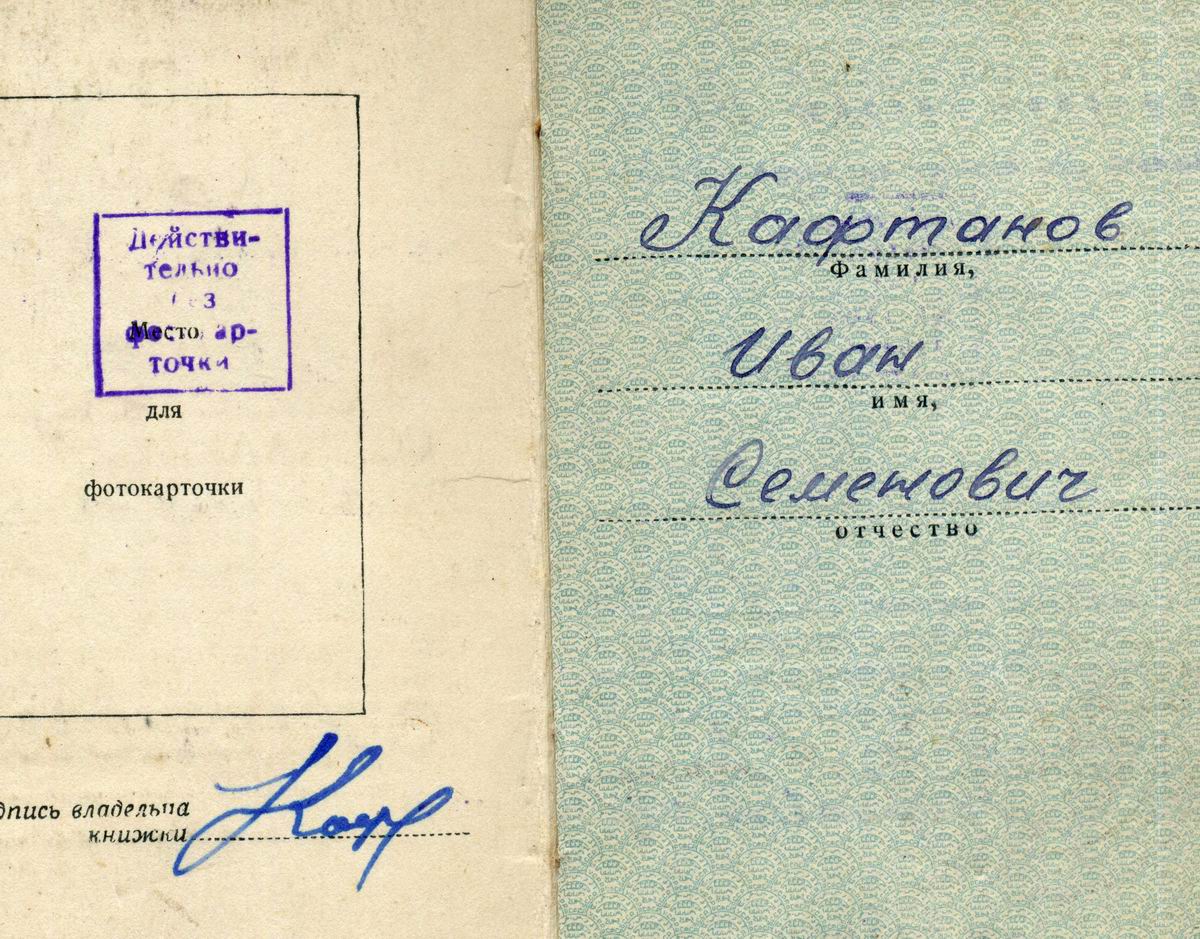 Действи-
тельно
без
фотокар-
точки
Место
для
фотокарточки
дпись владельца
книжки
Каф
Кафтанов
Фамилия,
Иван
имя,
Семенович
отчество